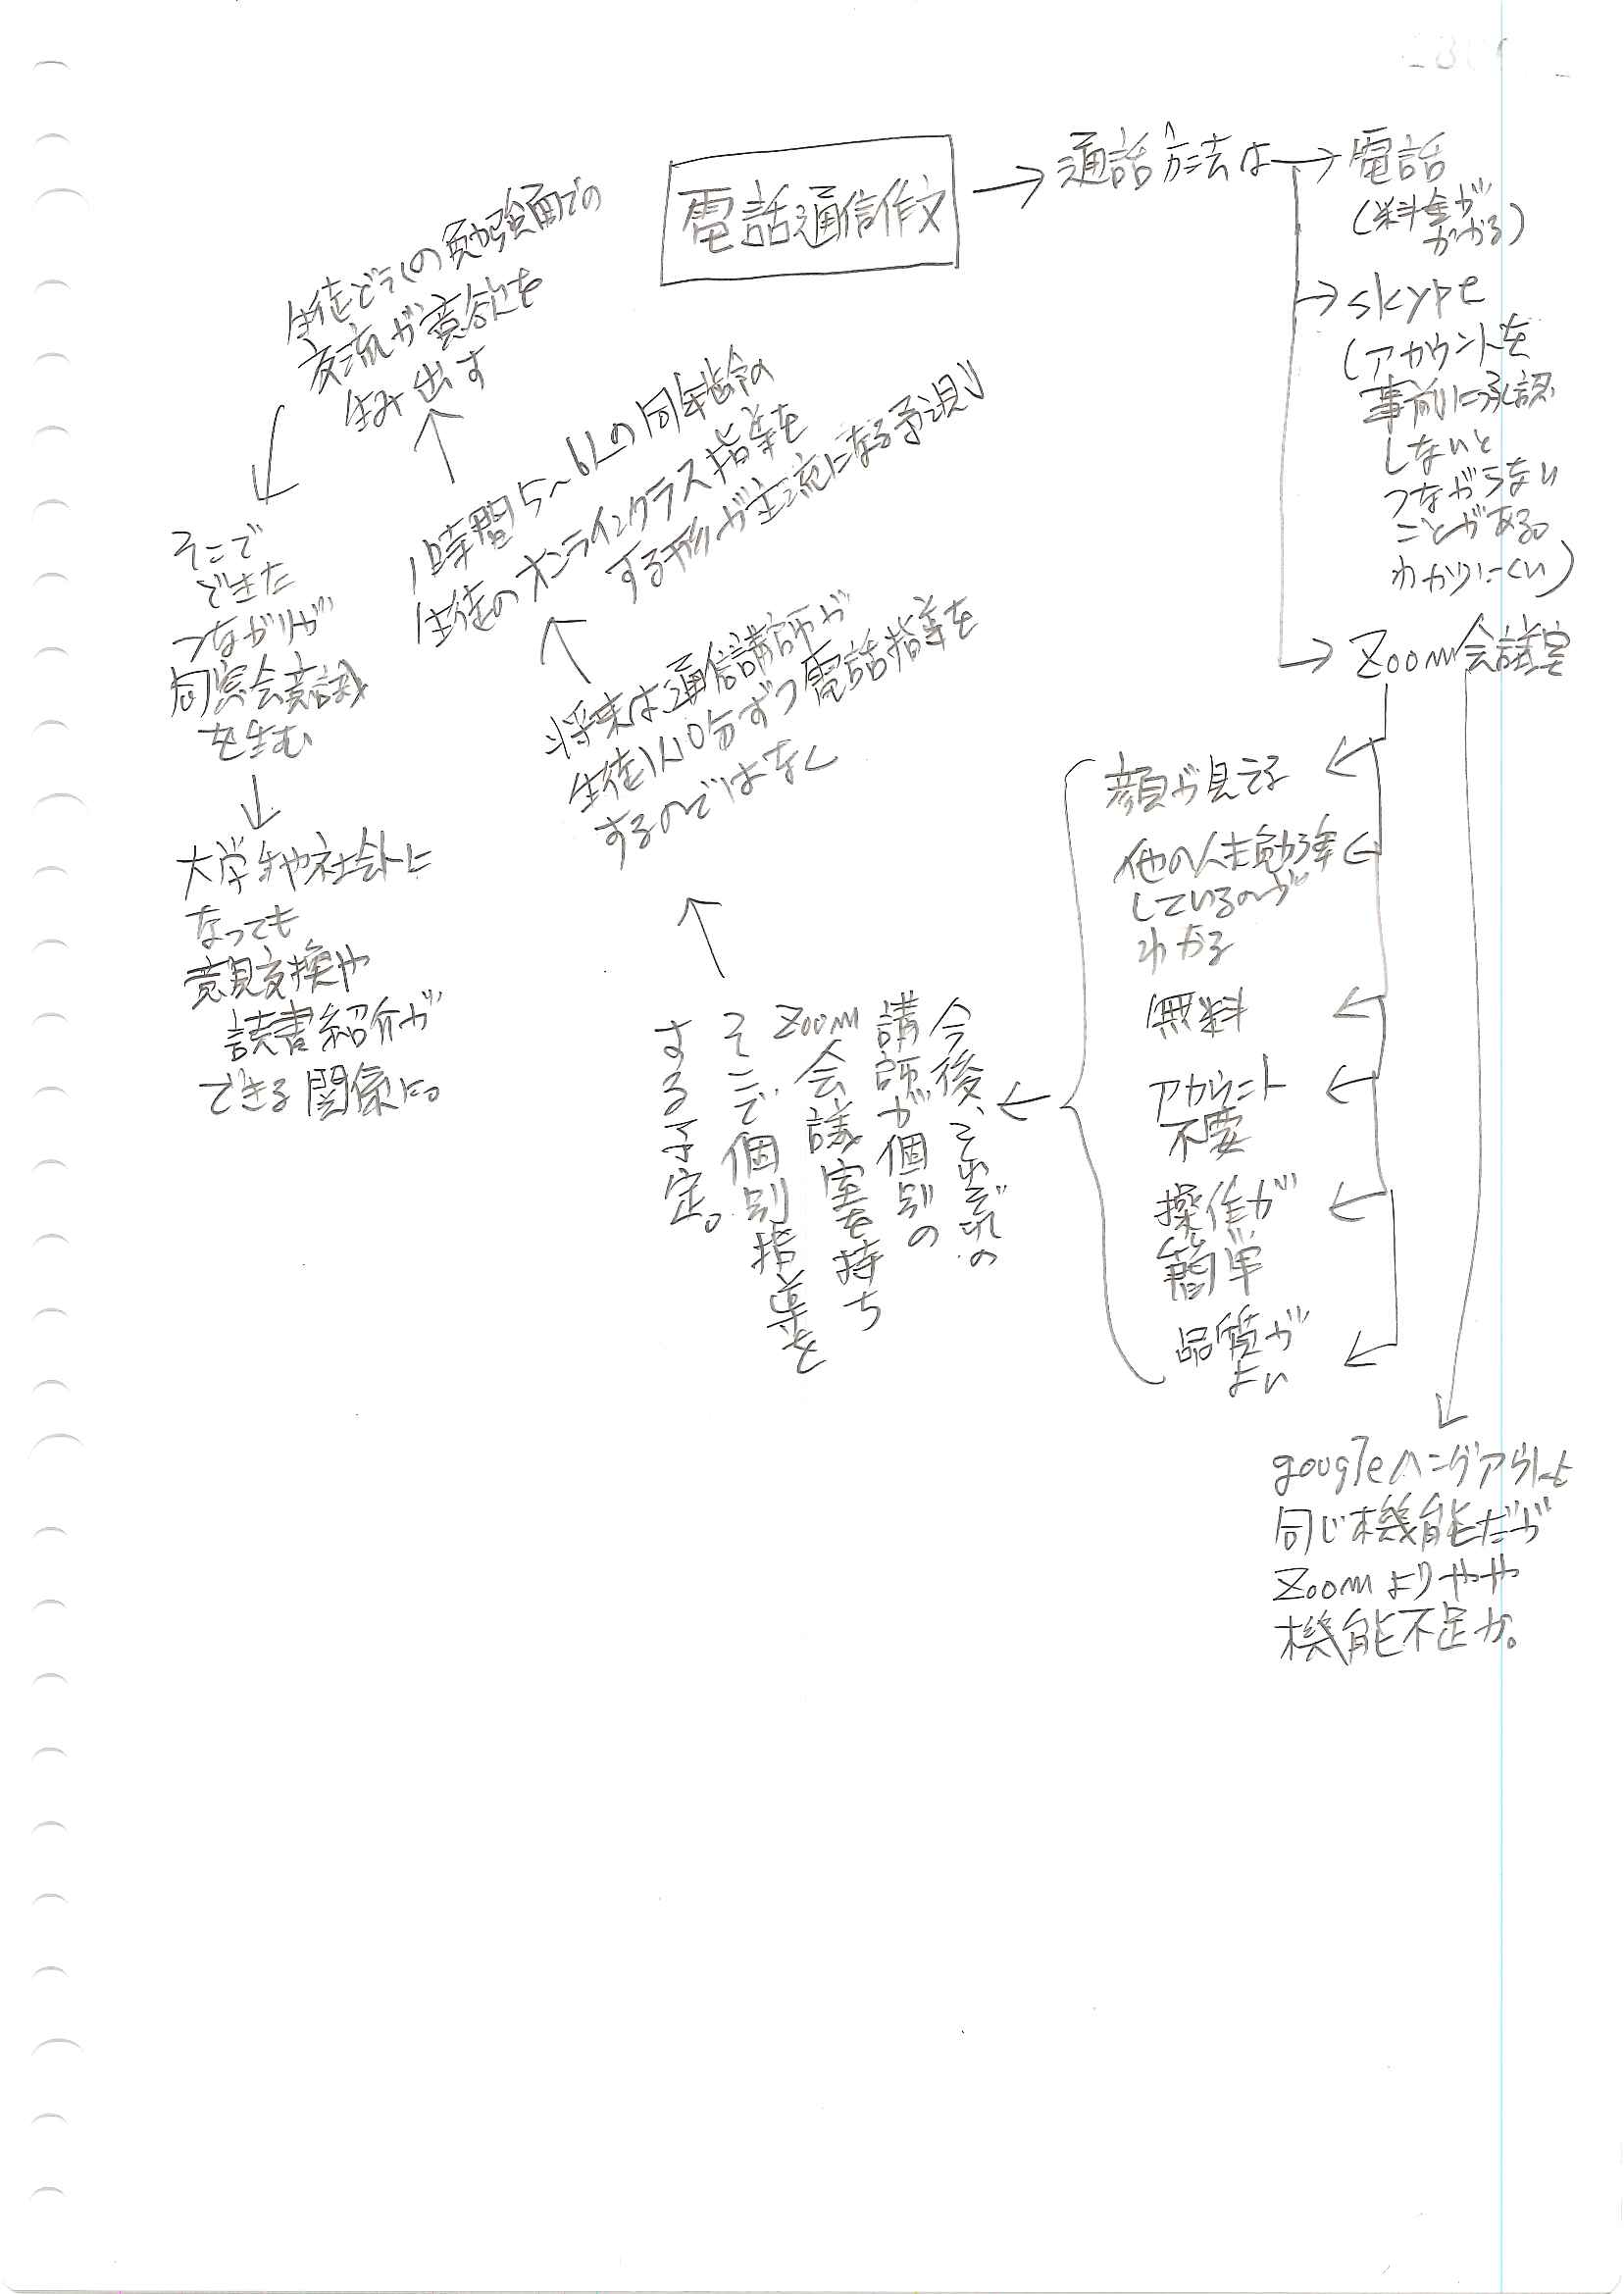 電話通信作文
通話方法は
電話
(料金が
かかる)
skype
(アカウントを
事前に承認
しないと
つながらない
ことがある。
わかりにくい)
Zoom会議室
顔が見える
他の人も勉強
しているのが
わかる
無料
アカウント
不要
操作が
簡単
品質が
よい
googleハングアウトと
同じ機能だが
Zoomよりやや
機能不足か。
今後、それぞれの
講師が個別の
Zoom会議室を持ち
そこで個別指導を
する予定。
将来は通信講師が
生徒1人10分ずつ電話指導を
するのではなく
1時間5~6人の同年齢の
生徒のオンラインクラス指導を
する形が主流になる予測
生徒どうしの勉強面での
交流が意欲を
生み出す
そこで
できた
つながりが
同窓会意識
を生む
大学生や社会人に
なっても
意見交換や
読書紹介が
できる関係に。